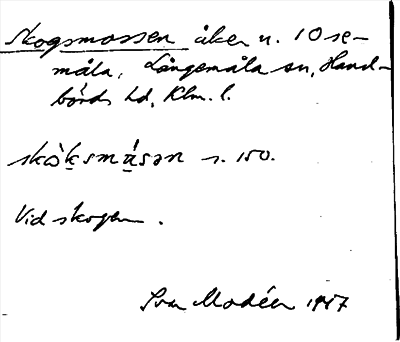 Skogsmossen åker n. 10 se-
måla, Långemåla sn, Hand-
börds hd, Klm. l.
skòk̬smùsən s. 150.
Vid skogen.
Ivar Modéer 1917